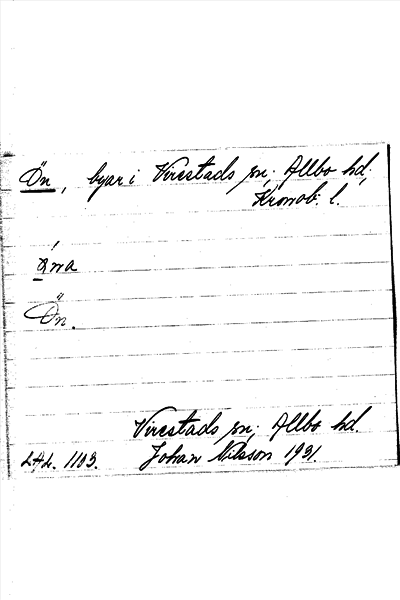 Ön, byar i Virestads sn; Allbo hd;
Kronob. l.
Ön.
Virestads sn; Allbo hd.
LAL. 1103. Johan Nilsson 1931.